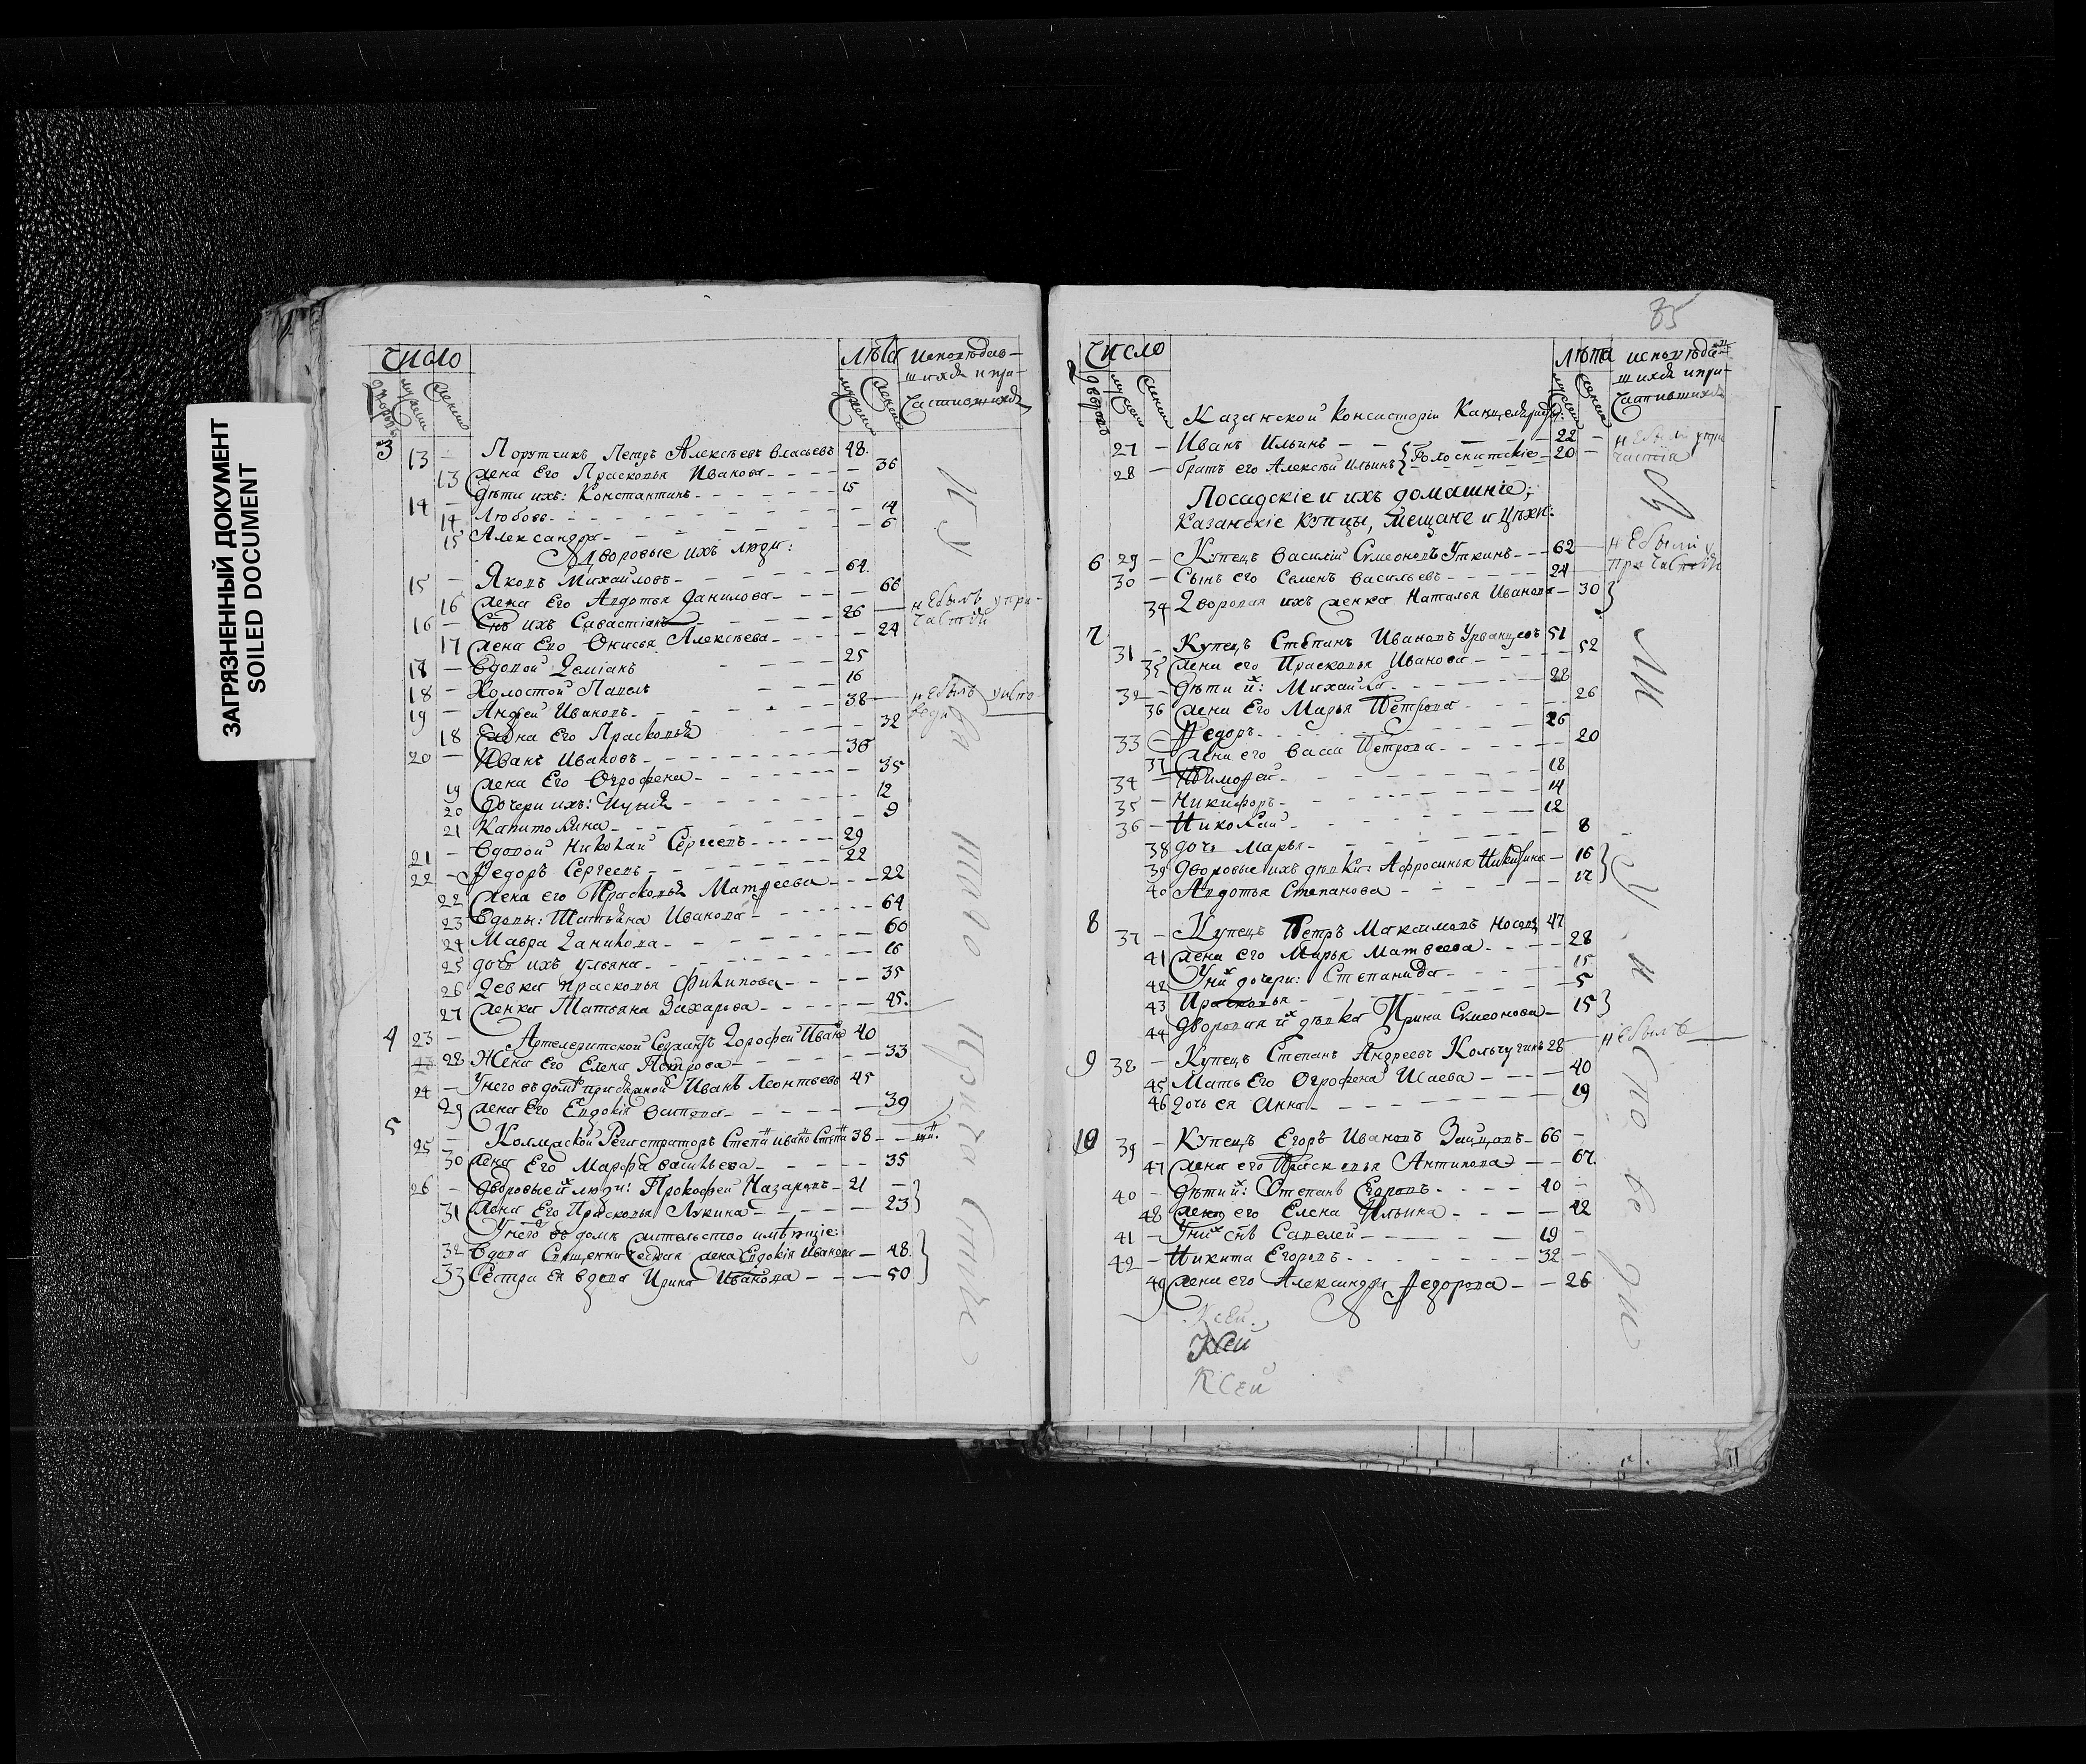 ЗАГРЯЗНЕННЫЙ ДОКУМЕНТ
SOILED DOCUMENT
число
лѣта исповѣдав-
шихся и при-
частившихся
дворовъ мужеска женска мужеска женска
3 13 – Порутчикъ Петръ Алексѣевъ Власьевъ 48.
13 жена Его Прасковья Иванова – 36
14 – дѣти ихъ: Константинъ – 15
14 Любовь – 14
15 Александра – 6
Дворовые ихъ люди:
15 – Яковъ Михайловъ – 64.
16 жена Его Авдотья Данилова – 66
16 – Снъ ихъ Савастіанъ – 26 – не былъ у при-
частія
17 жена Его Онисья Алексѣева – 24
17 – Вдовой Деміанъ – 25
18 – Холостой Павелъ – 16
19 – Андрей Ивановъ – 38 – не былъ у испо-
веди
18 жена Его Прасковья – 32
20 – Иванъ Ивановъ – 36
19 жена Его Огрофена – 35
20 дочери ихъ: – 12
21 Капитолина – 9
21 – Вдовой Николай Сергеевъ – 29
22 – Федоръ Сергеевъ – 22
22 жена его Прасковья Матфеева – 22
23 Вдовы: Татьяна Иванова – 64
24 Мавра Данилова – 60
25 дочь ихъ Ульяна – 16
26 Девка Прасковья Филипова – 35
27 женка Татьяна Захарова – 45.
4 23 – Сержантъ Дорофей Ивано 40
28 Жена Его Елена Петрова – 33
24 – У него въ домѣ Иванъ Леонтьевъ 45
29 жена Его Евдокія Осипова – 39
5 25 – Регистраторъ Степа Ивано Степа 38 –
30 жена Его Марфа Васильева – 35
26 – дворовые их люди: Прокофей Назаровъ – 21 –
31 жена Его Прасковья Лукина – 23
У него въ домѣ жительство имѣющіе:
32 Вдова Священническая жена Евдокія Иванова – 48.
33 Сестра Ея вдова Ирина Иванова – 50
85
число
лѣта исповѣдав-
шихся и при-
частившихся
дворовъ мужеска женска мужеска женска
Казанской Консисторіи
27 – Иванъ Ильинъ – 22 – не были у при
28 – братъ его Алексѣй Ильинъ – 20 – частія
Посадскіе и ихъ домашніе;
Казанскіе Купцы, Мещане и Цѣхи:
6 29 – Купецъ Василій Симеоновъ Уткинъ – 62 – не были у
30 – Сынъ его Семенъ Васильевъ – 24 – причастія
34 Дворовая ихъ женка Наталья Иванова – 30
7 31 – Купецъ Степанъ Ивановъ Урванцовъ 51
35 жена его Прасковья Иванова – 52
32 – дѣти их: Михайла – 28
36 жена Его Марья Петрова – 26
33 – Федоръ – 26
37 жена его Васса Петрова – 20
34 – Тимофей – 18
35 – Никифоръ – 14
36 – Николай – 12
38 дочь Марья – 8
39 дворовые ихъ дѣвки: Афросинья Никитина – 16
40 Авдотья Степанова – 17
8 37 – Купецъ Петръ Максимовъ Носовъ 47
41 жена его Марья Матвеева – 28
42 У них дочери: Степанида – 15
43 Прасковья – 5
44 дворовая их дѣвка Ирина Симеонова – 15
9 38 – Купецъ Степанъ Андреевъ Кольчугинъ 28 – не былъ
45 Мать Его Огрофена Исаева – 40
46 Дочь ея Анна – 19
10 39 – Купецъ Егоръ Ивановъ Зайцовъ – 66 –
47 жена его Прасковья Антипова – 67.
40 – дѣти их: Степанъ Егоровъ – 40 –
48 жена его Елена Ильина – 42
41 – У них снъ Савелей – 19 –
42 – Никита Егоровъ – 32 –
49 жена его Александра Федорова – 26
Ксей
Ксей
Ксей